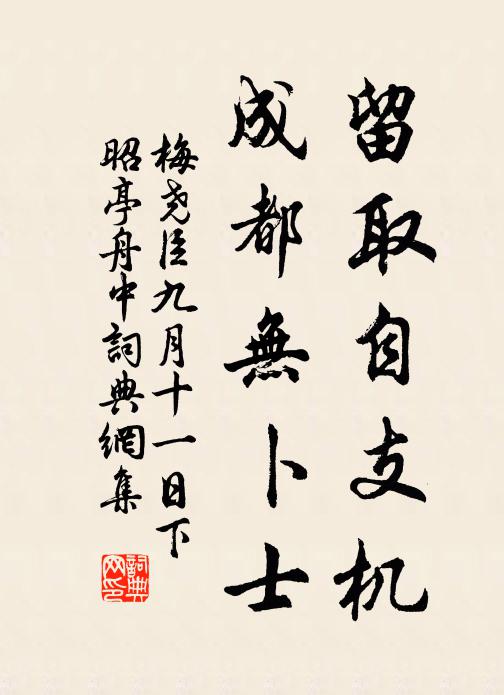 留取自支机
成都無卜士
梅尧臣九月十一日下
昭亭舟中詞典網集
詞典網印